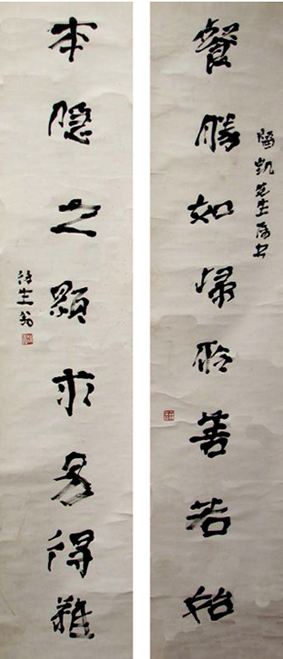 餐勝如歸聆善若始
凱先生屬書
本隱之顯求得難
徐生翁